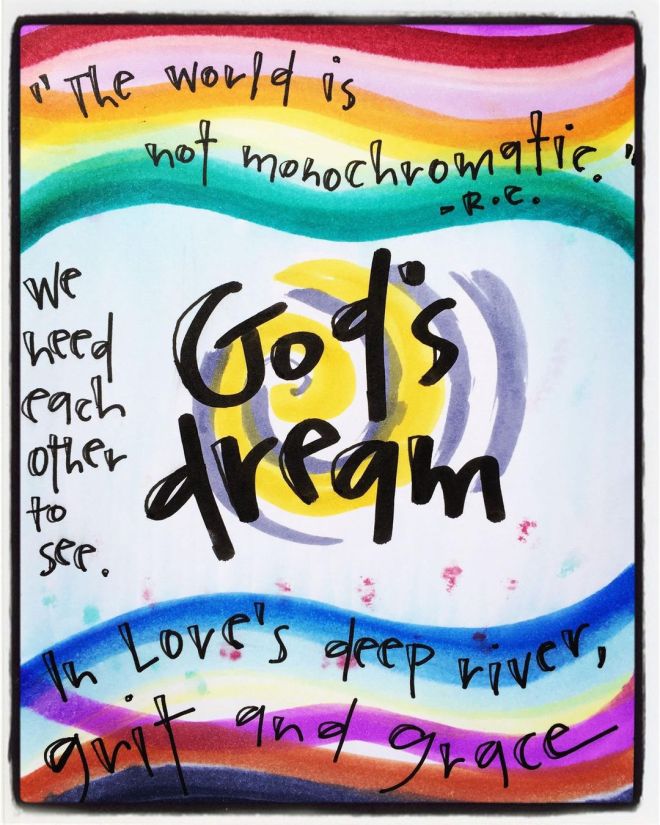 "The world is
not monochromatic."
-R.E.
We
need
each
other
to
see.
God's
dream
In Love's deep river,
grit and grace